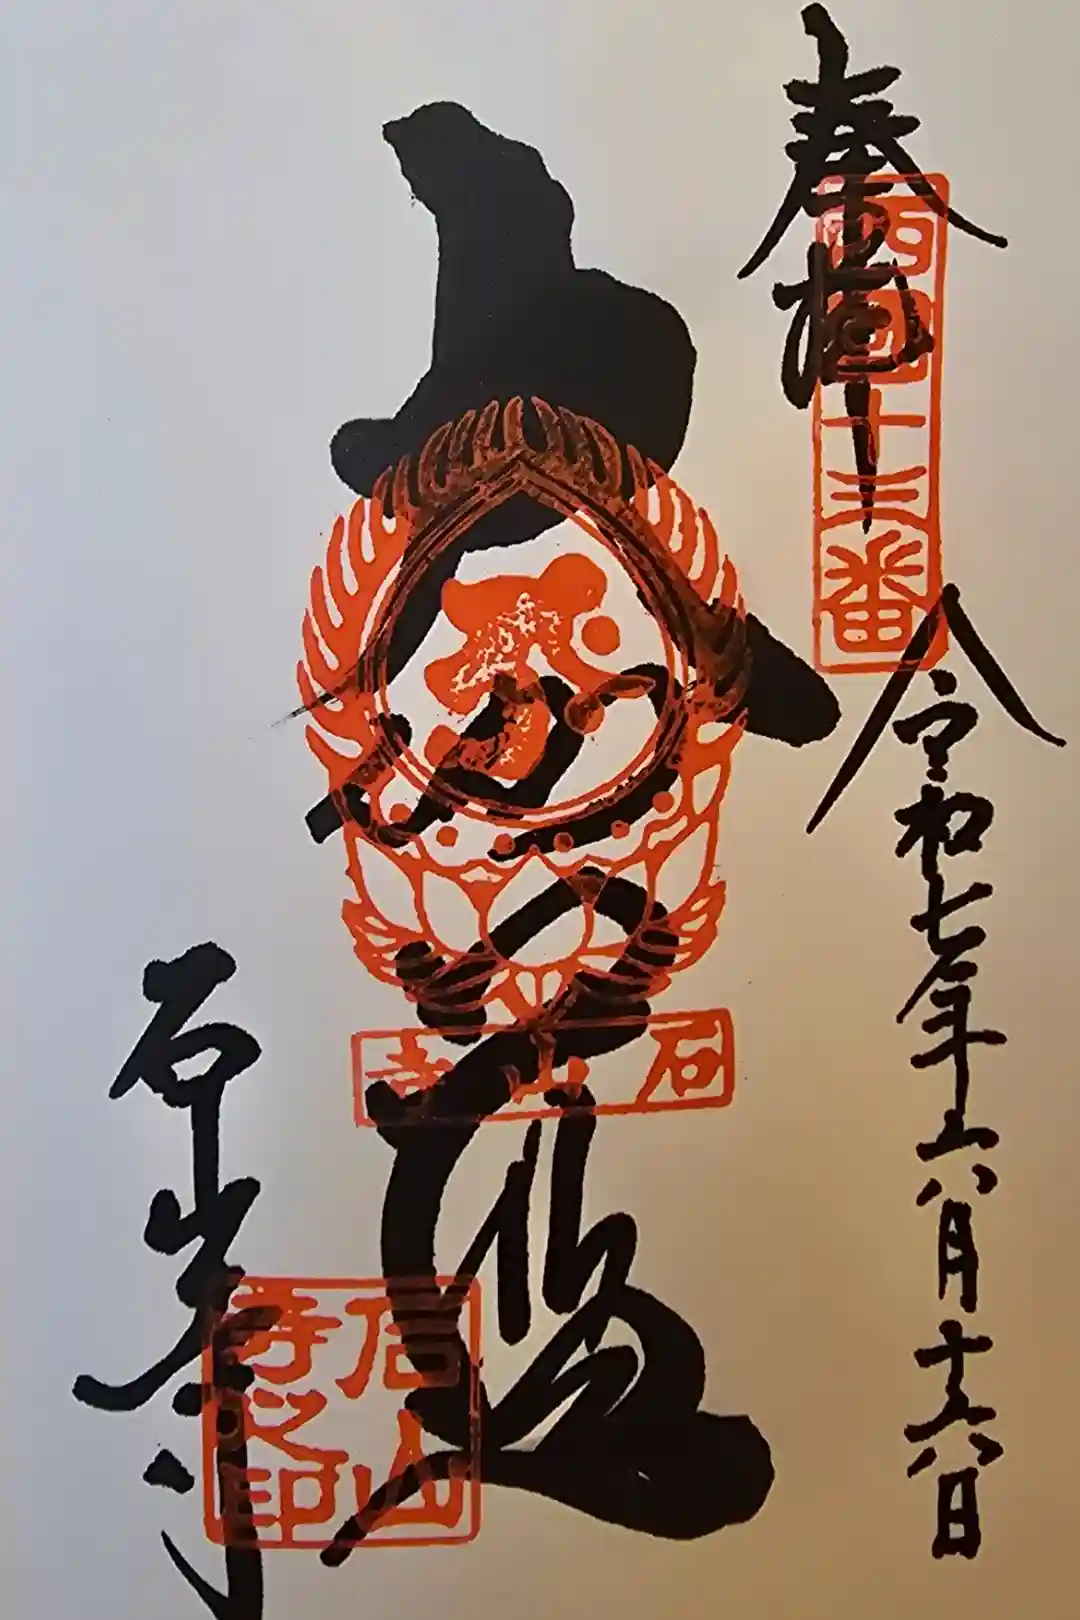 奉拝
西国十三番
令和七年六月十六日
大伽藍
石山寺
石山寺
石山寺之印